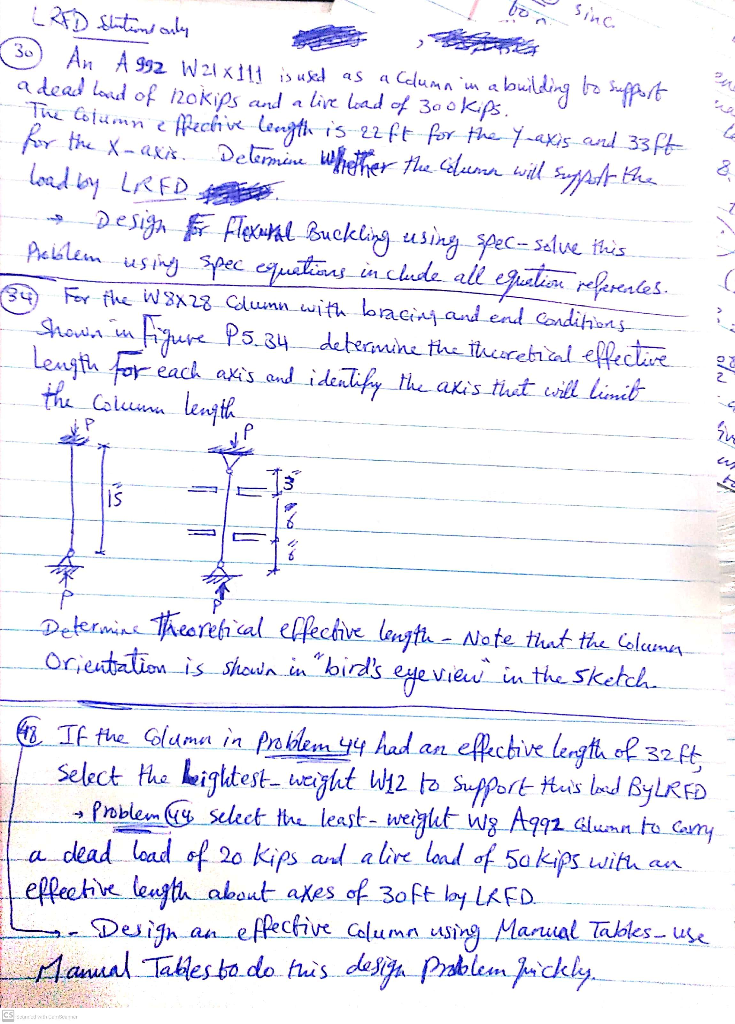 LRFD Solutions only
bon
sinc
(30) An A992 W21x111 is used as a Column in a building to support
a dead load of 120kips and a live load of 300kips.
The Column effective length is 22ft for the Y-axis and 33ft
for the X-axis. Determine Whether the Column will support the
load by LRFD
→ Design For Flexural Buckling using spec-solve this
Problem using spec equations include all equation references.
(34) For the W8x28 Column with bracing and end Conditions
Shown in Figure P5.34 determine the theoretical effective
Length for each axis and identify the axis that will limit
the Column length
P
P
15'
3'
6'
6'
P
P
Determine Theoretical effective length - Note that the Column
Orientation is shown in "bird's eye view" in the sketch.
(48) If the Column in Problem 44 had an effective length of 32 ft,
Select the Leightest-weight W12 to Support this load By LRFD
→ Problem (44) select the least-weight W8 A992 Column to carry
a dead load of 20 kips and a live load of 50 kips with an
effective length about axes of 30ft by LRFD.
→ - Design an effective Column using Manual Tables - use
Manual Tables to do this design Problem quickly.
CS Scanned with CamScanner